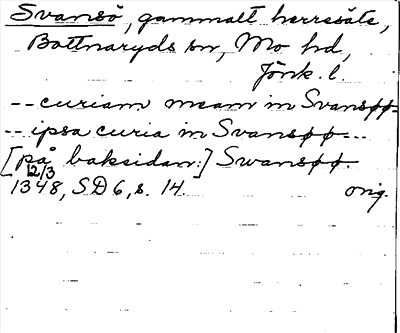 Svansö, gammalt herresäte,
Bottnaryds sn, Mo hd,
Jönk. l.
-- curiam meam in Svansøø-
-- ipsa curia in Svansøø--.
[på baksidan:] Swansøø.
12/3
1348, SD 6, s. 14. orig.